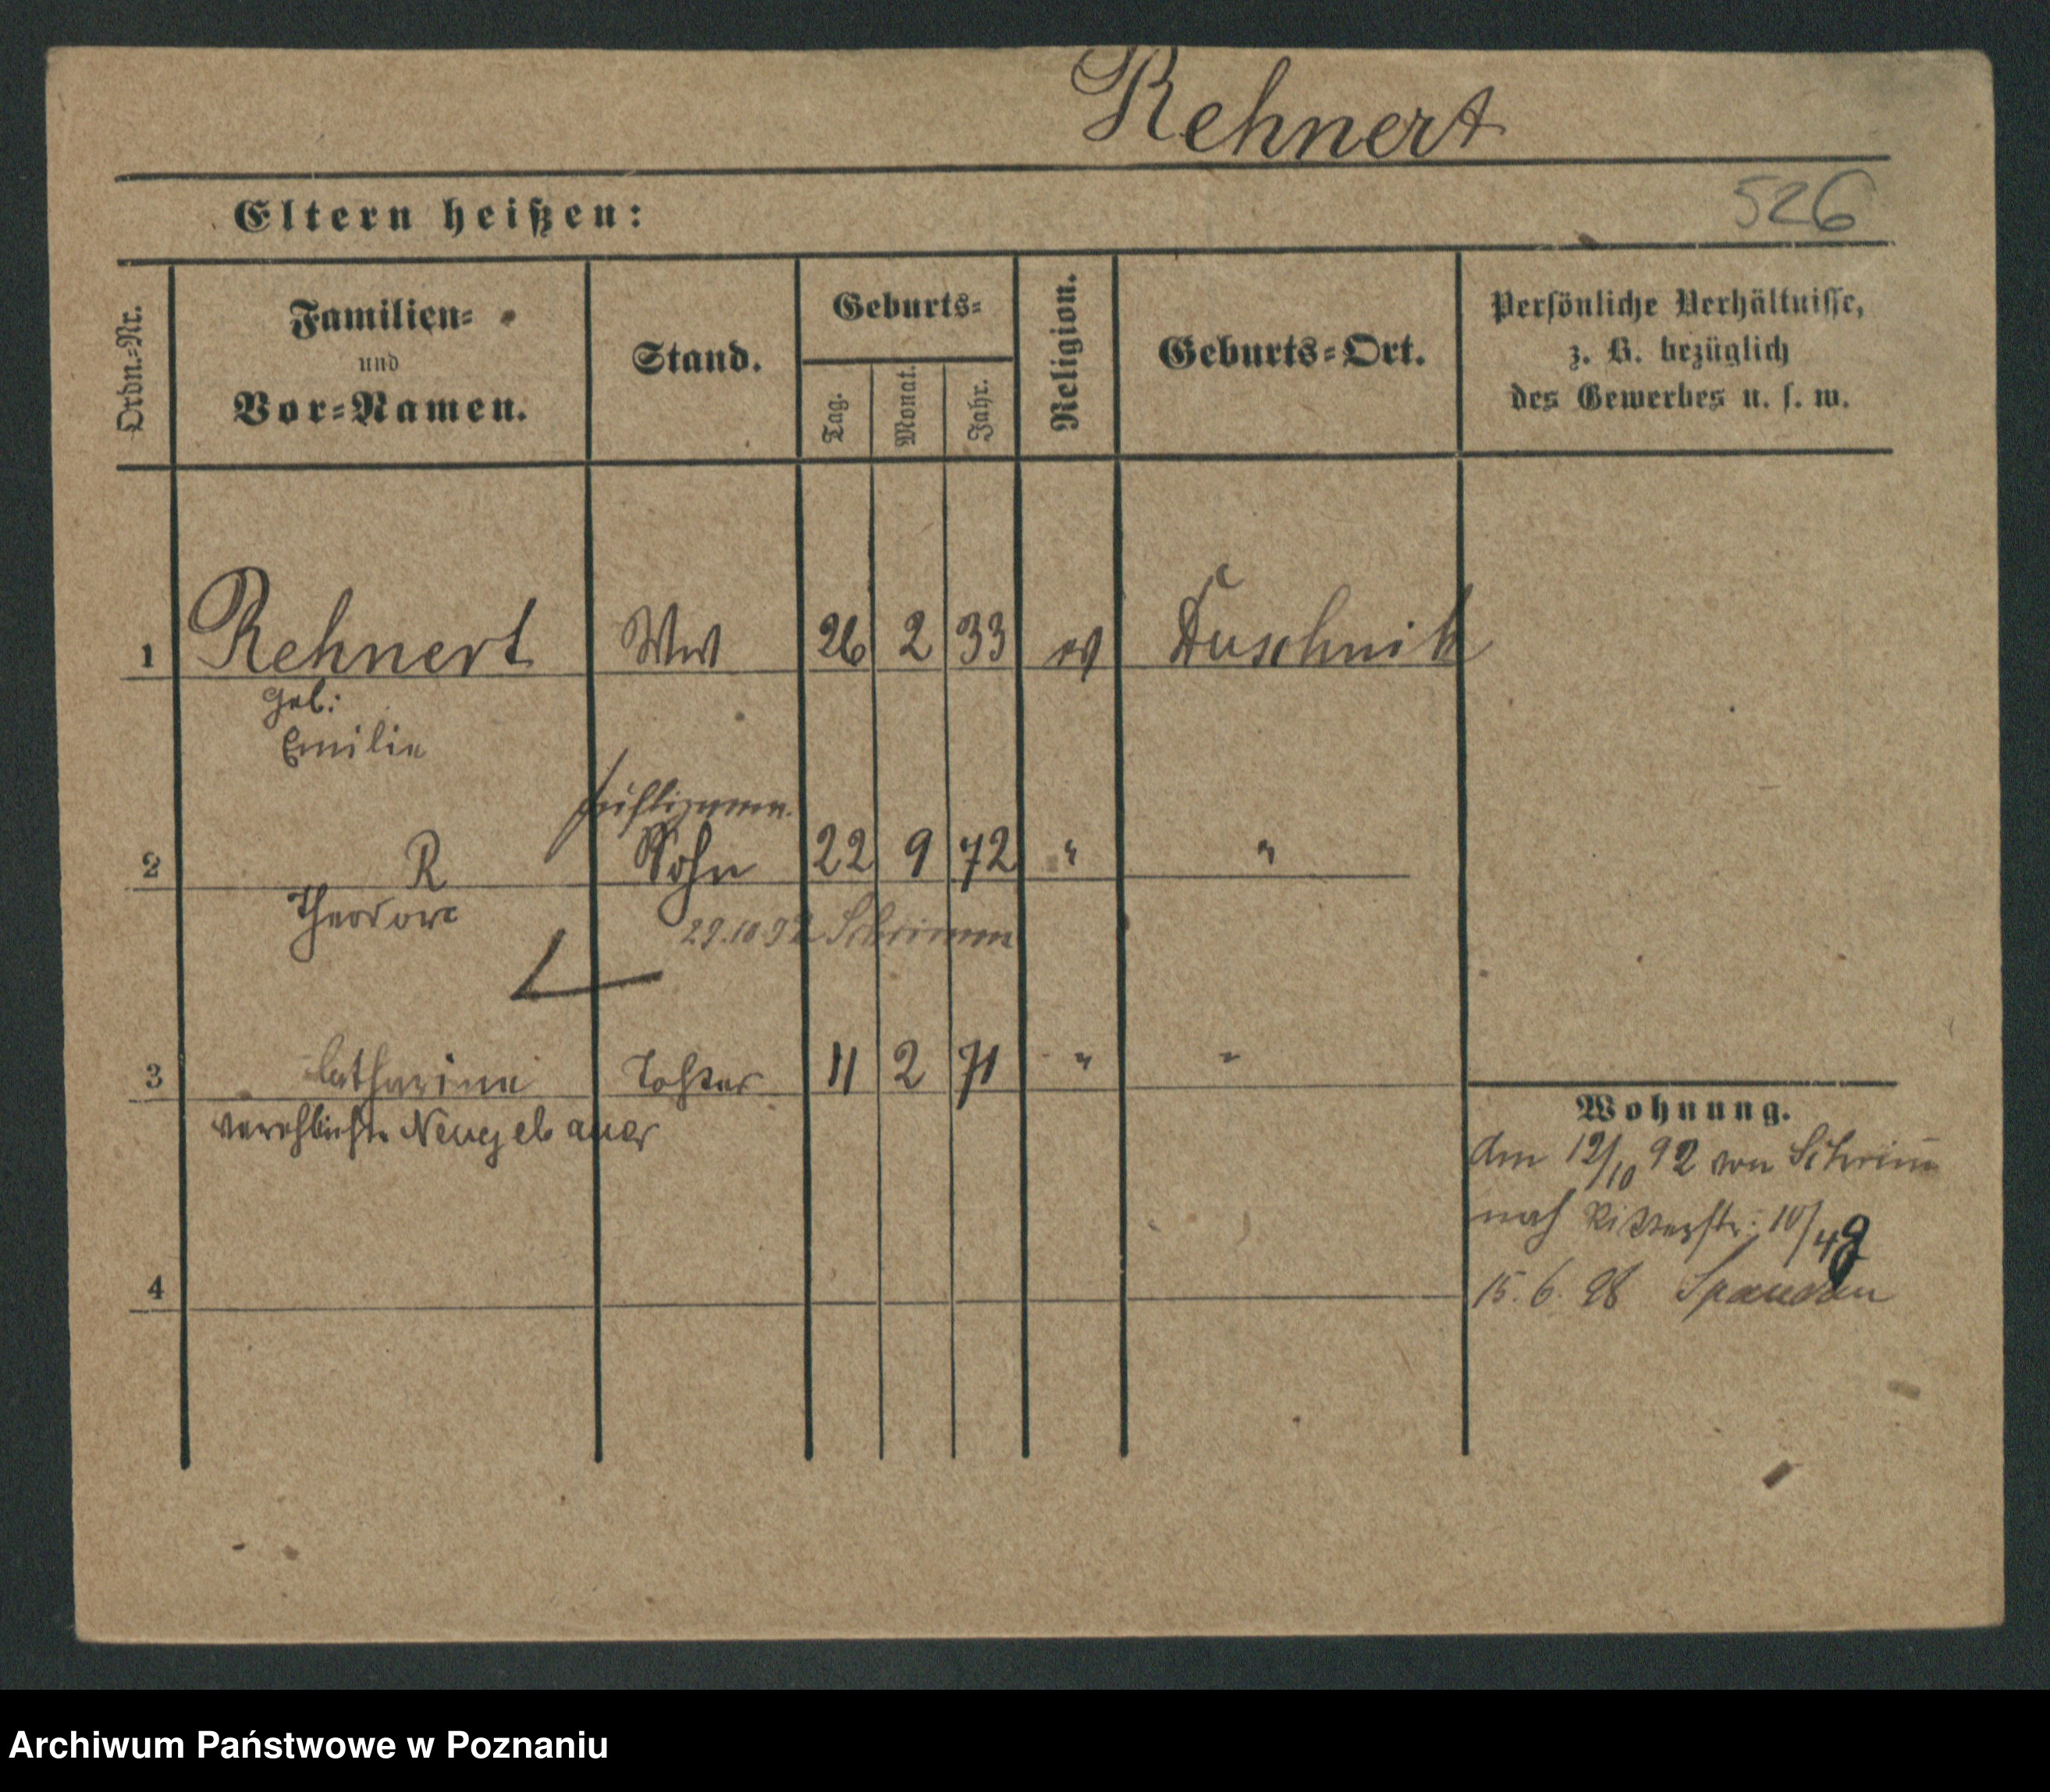 Rehnert
526
Eltern heißen:
Ordn.=Nr.
Familien=
und
Vor=Namen.
Stand.
Geburts=
Tag.
Monat.
Jahr.
Religion.
Geburts=Ort.
Persönliche Verhältnisse,
z. B. bezüglich
des Gewerbes u. s. w.
1 Rehnert Ww 26 2 33 ev Duschnik
geb:
Emilie
2 R Sohn 22 9 72 " "
Theodor
29.10 92 Schrimm
3 Catharina Tochter 11 2 71 " "
verehlichte Neugebauer
Wohnung.
Am 12/10 92 von Schrimm
nach Ritterstr: 10/49
15. 6. 98 Spandau
4
Archiwum Państwowe w Poznaniu